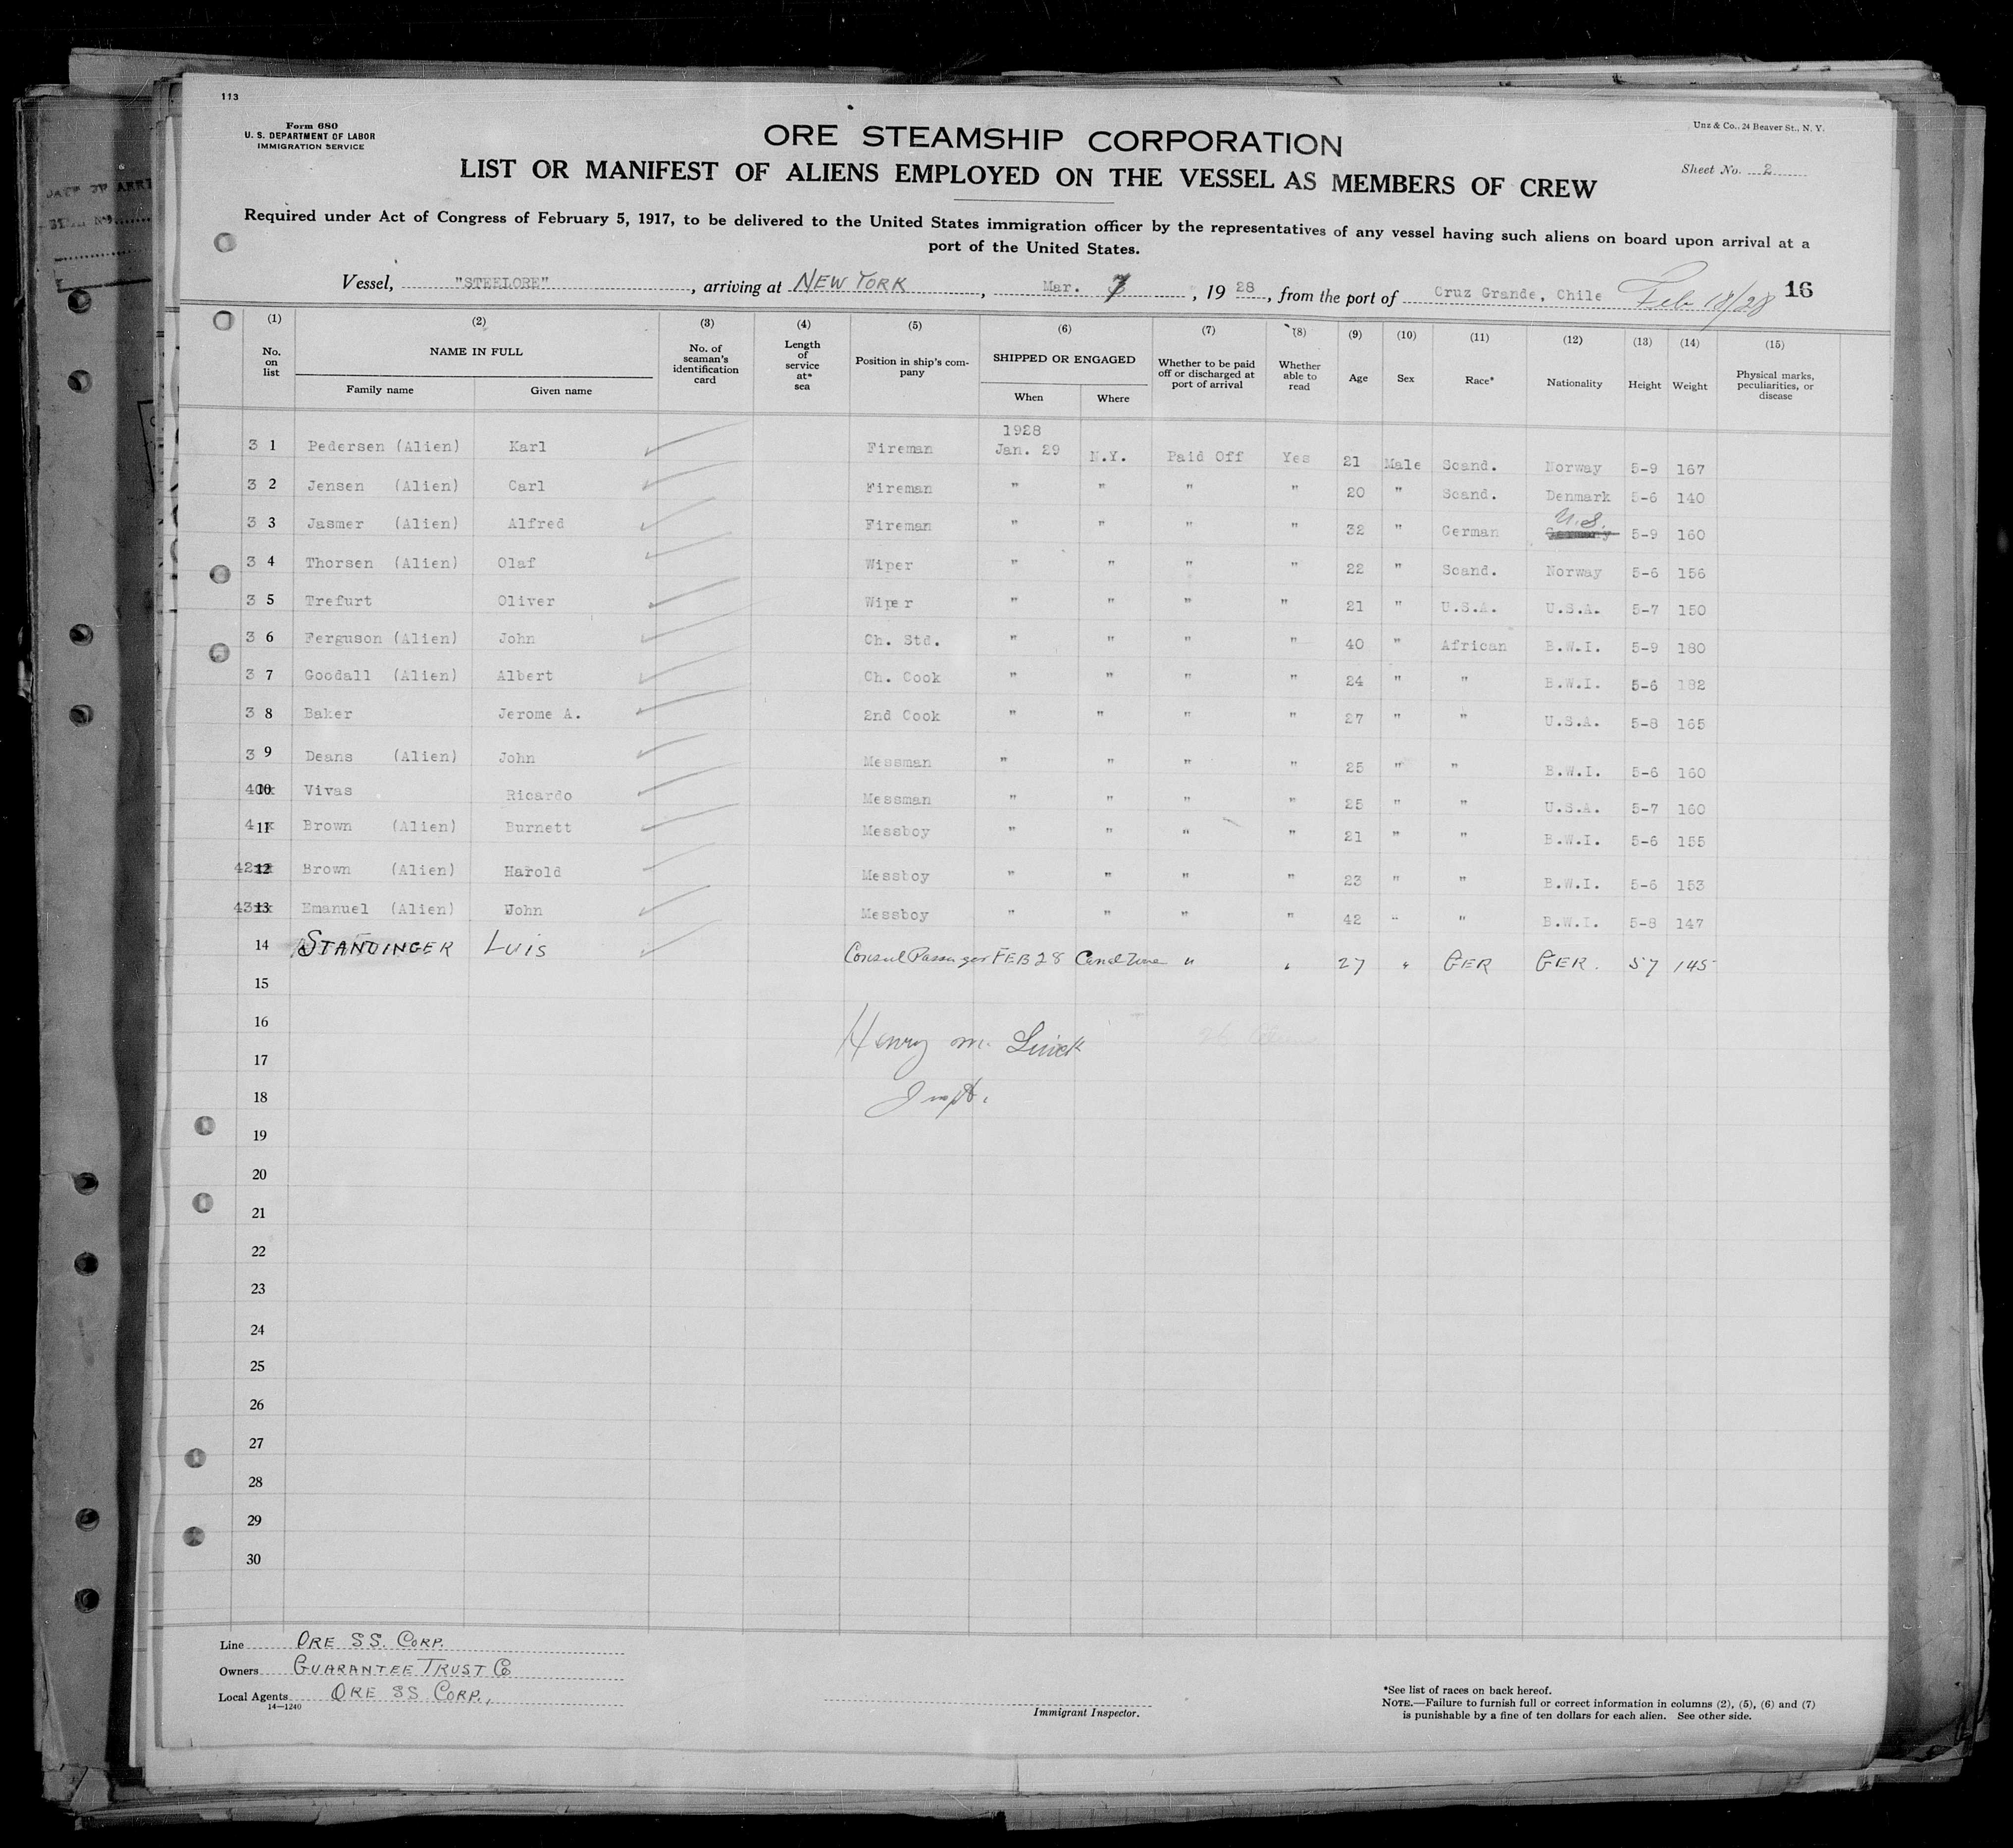 113
Form 680
U. S. DEPARTMENT OF LABOR
IMMIGRATION SERVICE
Unz & Co., 24 Beaver St., N. Y.
ORE STEAMSHIP CORPORATION
Sheet No. 2
LIST OR MANIFEST OF ALIENS EMPLOYED ON THE VESSEL AS MEMBERS OF CREW
Required under Act of Congress of February 5, 1917, to be delivered to the United States immigration officer by the representatives of any vessel having such aliens on board upon arrival at a
port of the United States.
Vessel, "STEELORE", arriving at NEW YORK, Mar. 7, 1928, from the port of Cruz Grande, Chile Feb 18/28 16
(1) (2) (3) (4) (5) (6) (7) (8) (9) (10) (11) (12) (13) (14) (15)
No. on list NAME IN FULL Family name Given name No. of seaman's identification card Length of service at* sea Position in ship's company SHIPPED OR ENGAGED When Where Whether to be paid off or discharged at port of arrival Whether able to read Age Sex Race* Nationality Height Weight Physical marks, peculiarities, or disease
1928
3 1 Pedersen (Alien) Karl Fireman Jan. 29 N.Y. Paid Off Yes 21 Male Scand. Norway 5-9 167
3 2 Jensen (Alien) Carl Fireman " " " " 20 " Scand. Denmark 5-6 140
3 3 Jasmer (Alien) Alfred Fireman " " " " 32 " German Germany U.S. 5-9 160
3 4 Thorsen (Alien) Olaf Wiper " " " " 22 " Scand. Norway 5-6 156
3 5 Trefurt Oliver Wiper " " " " 21 " U.S.A. U.S.A. 5-7 150
3 6 Ferguson (Alien) John Ch. Std. " " " " 40 " African B.W.I. 5-9 180
3 7 Goodall (Alien) Albert Ch. Cook " " " " 24 " " B.W.I. 5-6 182
3 8 Baker Jerome A. 2nd Cook " " " " 27 " " U.S.A. 5-8 165
3 9 Deans (Alien) John Messman " " " " 25 " " B.W.I. 5-6 160
40 10 Vivas Ricardo Messman " " " " 25 " " U.S.A. 5-7 160
4 11 Brown (Alien) Burnett Messboy " " " " 21 " " B.W.I. 5-6 155
42 12 Brown (Alien) Harold Messboy " " " " 23 " " B.W.I. 5-6 153
43 13 Emanuel (Alien) John Messboy " " " " 42 " " B.W.I. 5-8 147
14 STANDINGER LUIS Consul Passenger FEB 28 Canal Zone " " 27 " GER GER. 57 145
15
16
Henry M.
17
18
Inspt.
19
20
21
22
23
24
25
26
27
28
29
30
Line ORE SS. CORP.
Owners GUARANTEE TRUST Co
Local Agents ORE SS CORP.,
14—1240
Immigrant Inspector.
*See list of races on back hereof.
NOTE.—Failure to furnish full or correct information in columns (2), (5), (6) and (7)
is punishable by a fine of ten dollars for each alien. See other side.